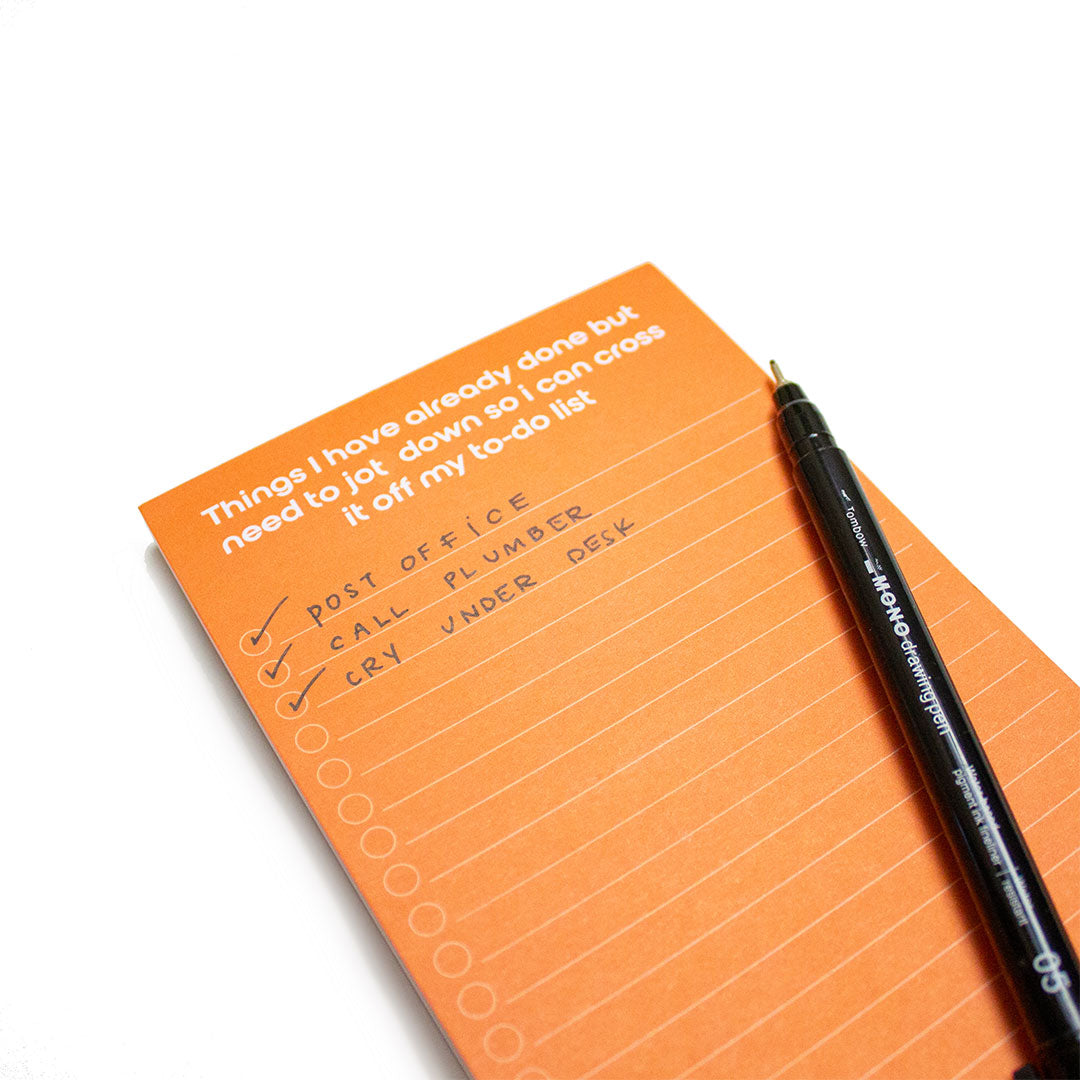 Things I have already done but
need to jot down so i can cross
it off my to-do list
POST OFFICE
CALL PLUMBER
CRY UNDER DESK
Tombow
MONO drawing pen
Water based
pigment ink fineliner | resistant
05